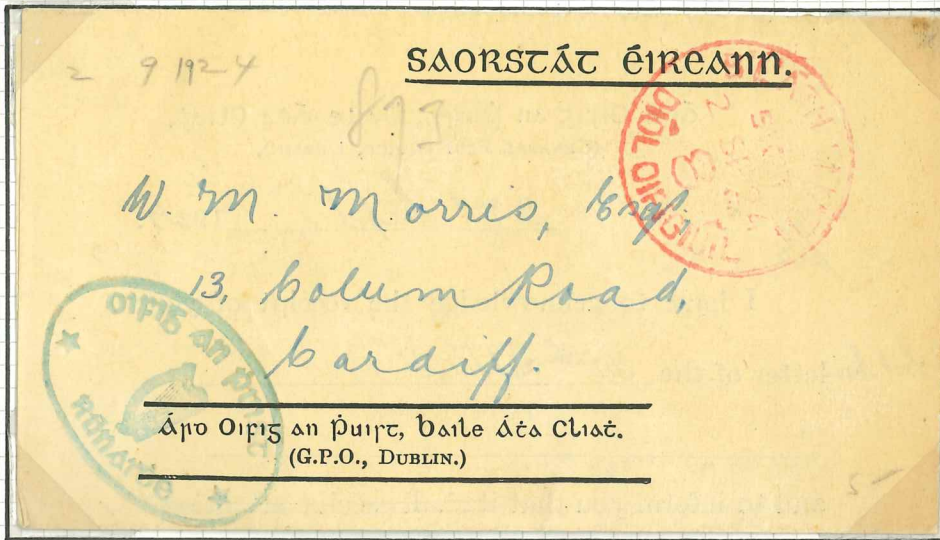 2 9 1924
SAORSTÁT ÉIREANN.
DIOL OIFIGIUIL
W. M. Morris, Esq.,
13, Colum Road,
Cardiff.
OIFIG AN PUIST
Árd Oifig an Ṗuist, Baile Áṫa Cliaṫ.
(G.P.O., DUBLIN.)
5-